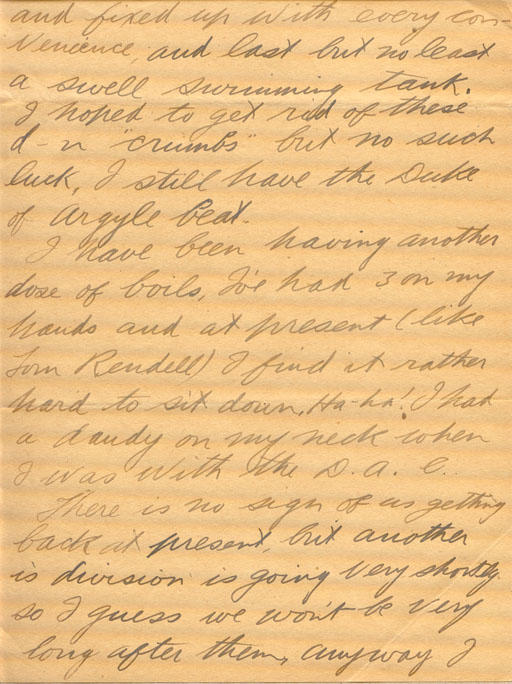 and fixed up with every con-
venience, and last but no least
a swell swimming tank.
I hoped to get rid of these
d-n "crumbs" but no such
luck, I still have the Duke
of Argyle beat.
I have been having another
dose of boils, I've had 3 on my
hands and at present (like
Tom Rendell) I find it rather
hard to sit down, Ha-ha! I had
a dandy on my neck when
I was with the D. A. C.
There is no sign of us getting
back at present, but another
is division is going very shortly
so I guess we won't be very
long after them, anyway I